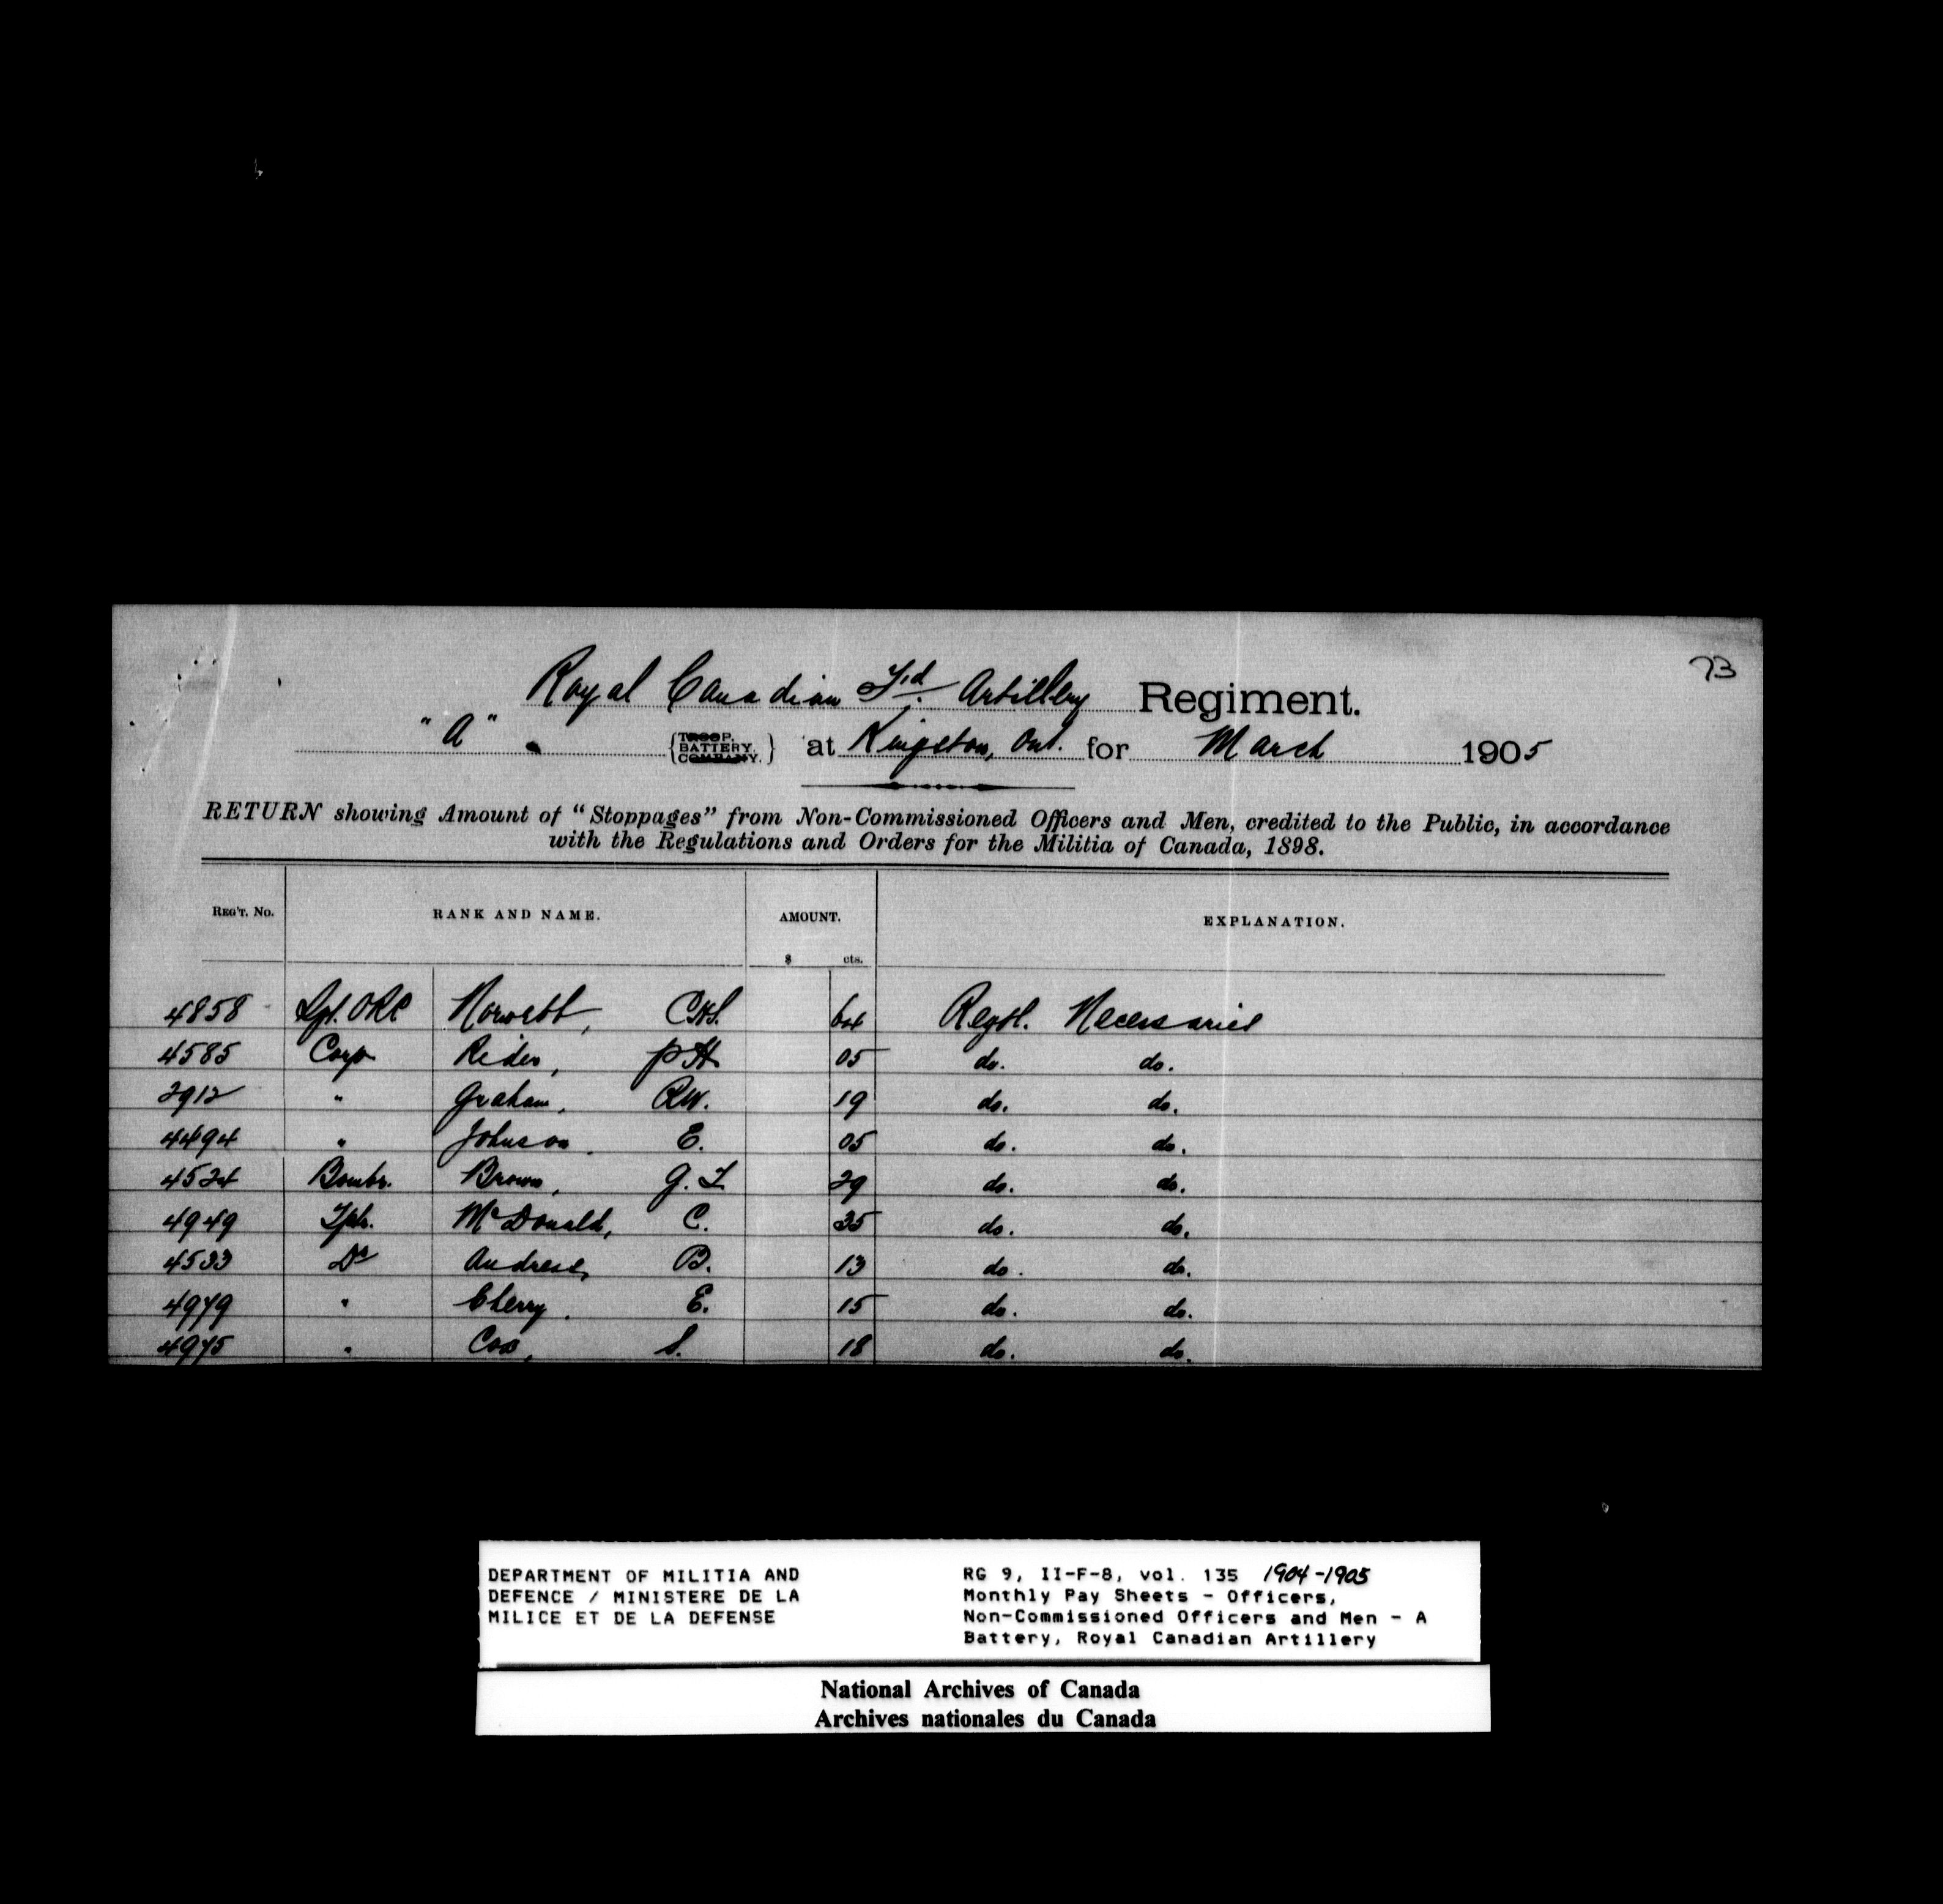 73
Royal Canadian Fd. Artillery Regiment.
"A" {TROOP. BATTERY. COMPANY.} at Kingston, Ont. for March 1905
RETURN showing Amount of "Stoppages" from Non-Commissioned Officers and Men, credited to the Public, in accordance
with the Regulations and Orders for the Militia of Canada, 1898.
REG'T. No. RANK AND NAME. AMOUNT. EXPLANATION.
$ cts.
4858 Sgt. ORC 64 Regtl. Necessaries
4585 Corp Rider, P H 05 do. do.
2912 " Graham, R W. 19 do. do.
4494 " Johnson, E. 05 do. do.
4524 Bombr. Brown, G. 29 do. do.
4949 Tptr. McDonald, C. 35 do. do.
4533 Dr Andrews, B. 13 do. do.
4979 " Cherry, E. 15 do. do.
4975 " Cox, S. 18 do. do.
DEPARTMENT OF MILITIA AND
DEFENCE / MINISTERE DE LA
MILICE ET DE LA DEFENSE
RG 9, II-F-8, vol. 135 1904-1905
Monthly Pay Sheets - Officers,
Non-Commissioned Officers and Men - A
Battery, Royal Canadian Artillery
National Archives of Canada
Archives nationales du Canada